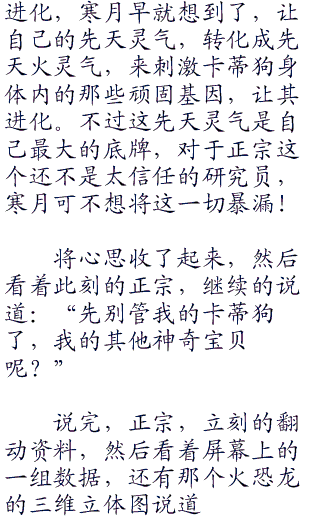 进化，寒月早就想到了，让
自己的先天灵气，转化成先
天火灵气，来刺激卡蒂狗身
体内的那些顽固基因，让其
进化。不过这先天灵气是自
己最大的底牌，对于正宗这
个还不是太信任的研究员，
寒月可不想将这一切暴漏！
将心思收了起来，然后
看着此刻的正宗，继续的说
道：“先别管我的卡蒂狗
了，我的其他神奇宝贝
呢？”
说完，正宗，立刻的翻
动资料，然后看着屏幕上的
一组数据，还有那个火恐龙
的三维立体图说道